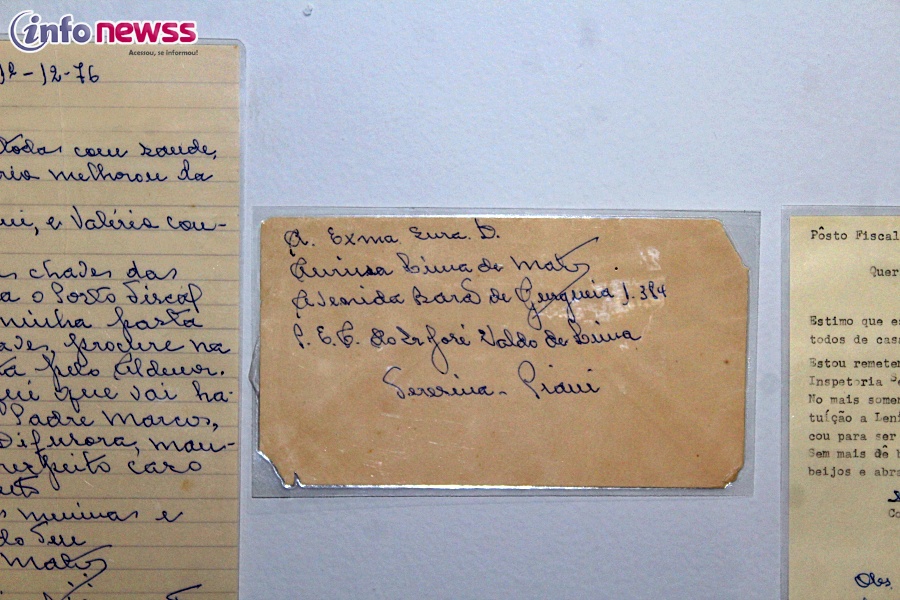 info newss
Acessou, se informou!
1º-12-76
todas com saude,
melhorou da
ui, e Valério con-
s chaves das
a o Posto Fiscal
minha pasta
aves, procure na
ta pelo Aldenor.
qui que vai ha-
Padre Marcos,
Difusora, man-
respeito caro
s meninas e
do Seu
Matos
A. Exma. Snra. D.
Aurinsa Lima de Matos.
Avenida Barão de Gurgueia J. 384
P. E. C. do Sr José Valdo de Lima
Teresina - Piaui
Pôsto Fiscal
Quer
Estimo que es
todos de casa
Estou remeten
Inspetoria
No mais somen
tuíção a Leni
cou para ser
Sem mais de b
beijos e abra
Co
Obs.